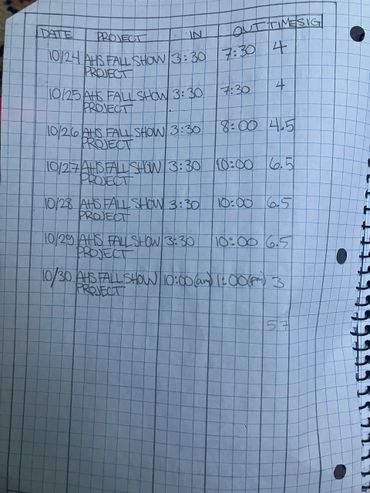 DATE PROJECT IN OUT TIME SIG
10/24 AHS FALL SHOW 3:30 7:30 4
PROJECT
10/25 AHS FALL SHOW 3:30 7:30 4
PROJECT
10/26 AHS FALL SHOW 3:30 8:00 4.5
PROJECT
10/27 AHS FALL SHOW 3:30 10:00 6.5
PROJECT
10/28 AHS FALL SHOW 3:30 10:00 6.5
PROJECT
10/29 AHS FALL SHOW 3:30 10:00 6.5
PROJECT
10/30 AHS FALL SHOW 10:00(am) 1:00(pm) 3
PROJECT